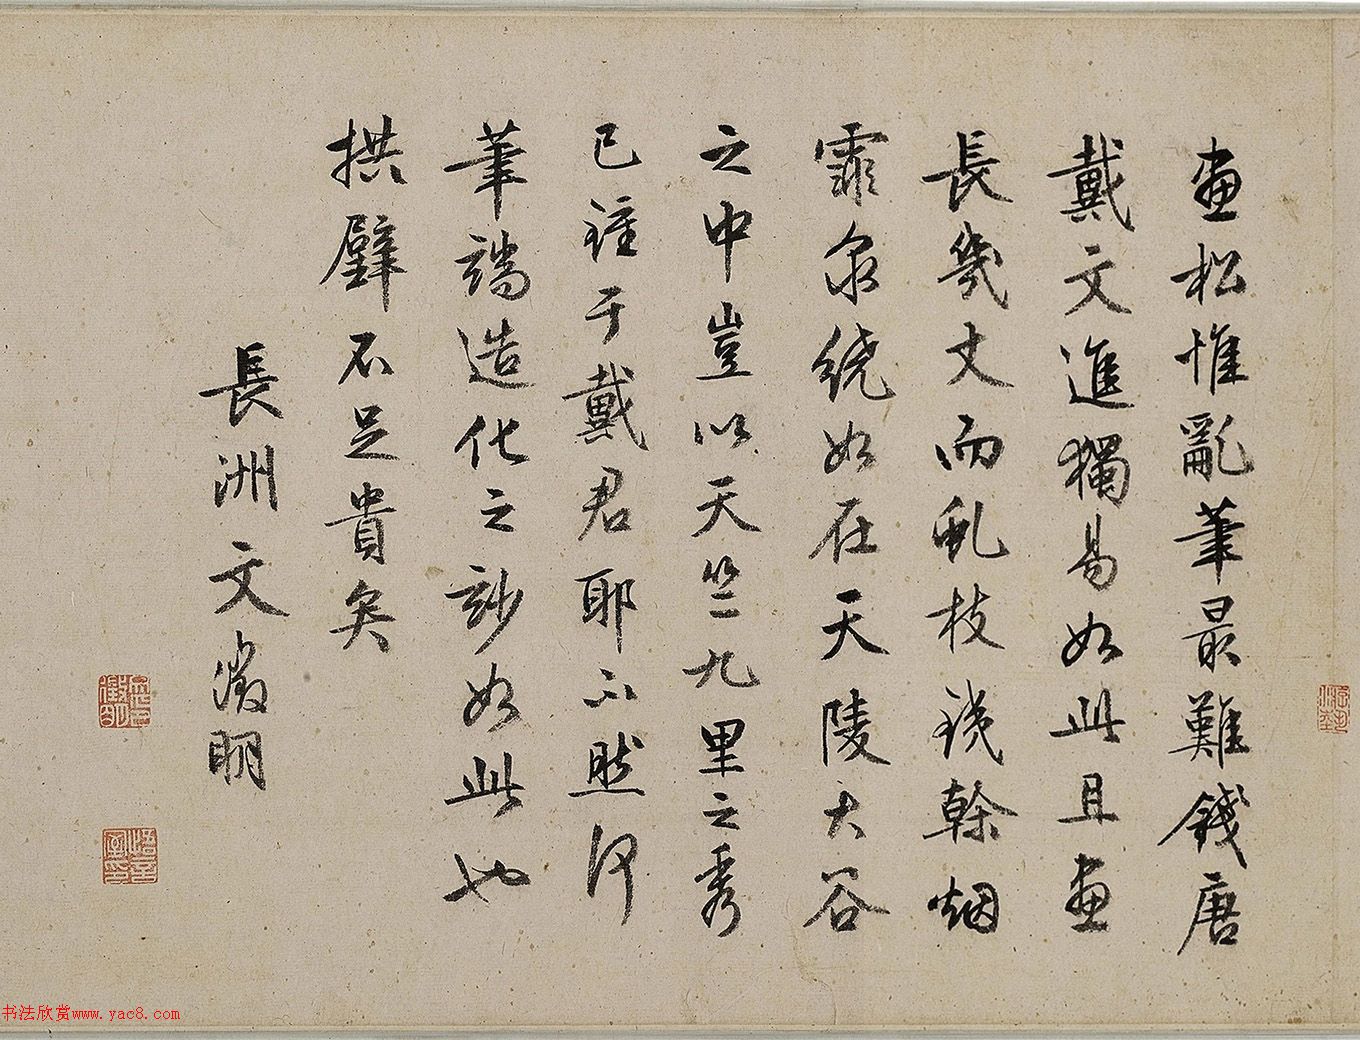 畫松惟亂筆最難錢唐
戴文進獨易如此且畫
長幾丈而亂枝殘幹烟
霏泉绕如在天陵大谷
之中豈以天竺九里之秀
已鍾于戴君耶不然何
筆端造化之妙如此也
拱璧不足貴矣
長洲文徵明
书法欣赏www.yac8.com